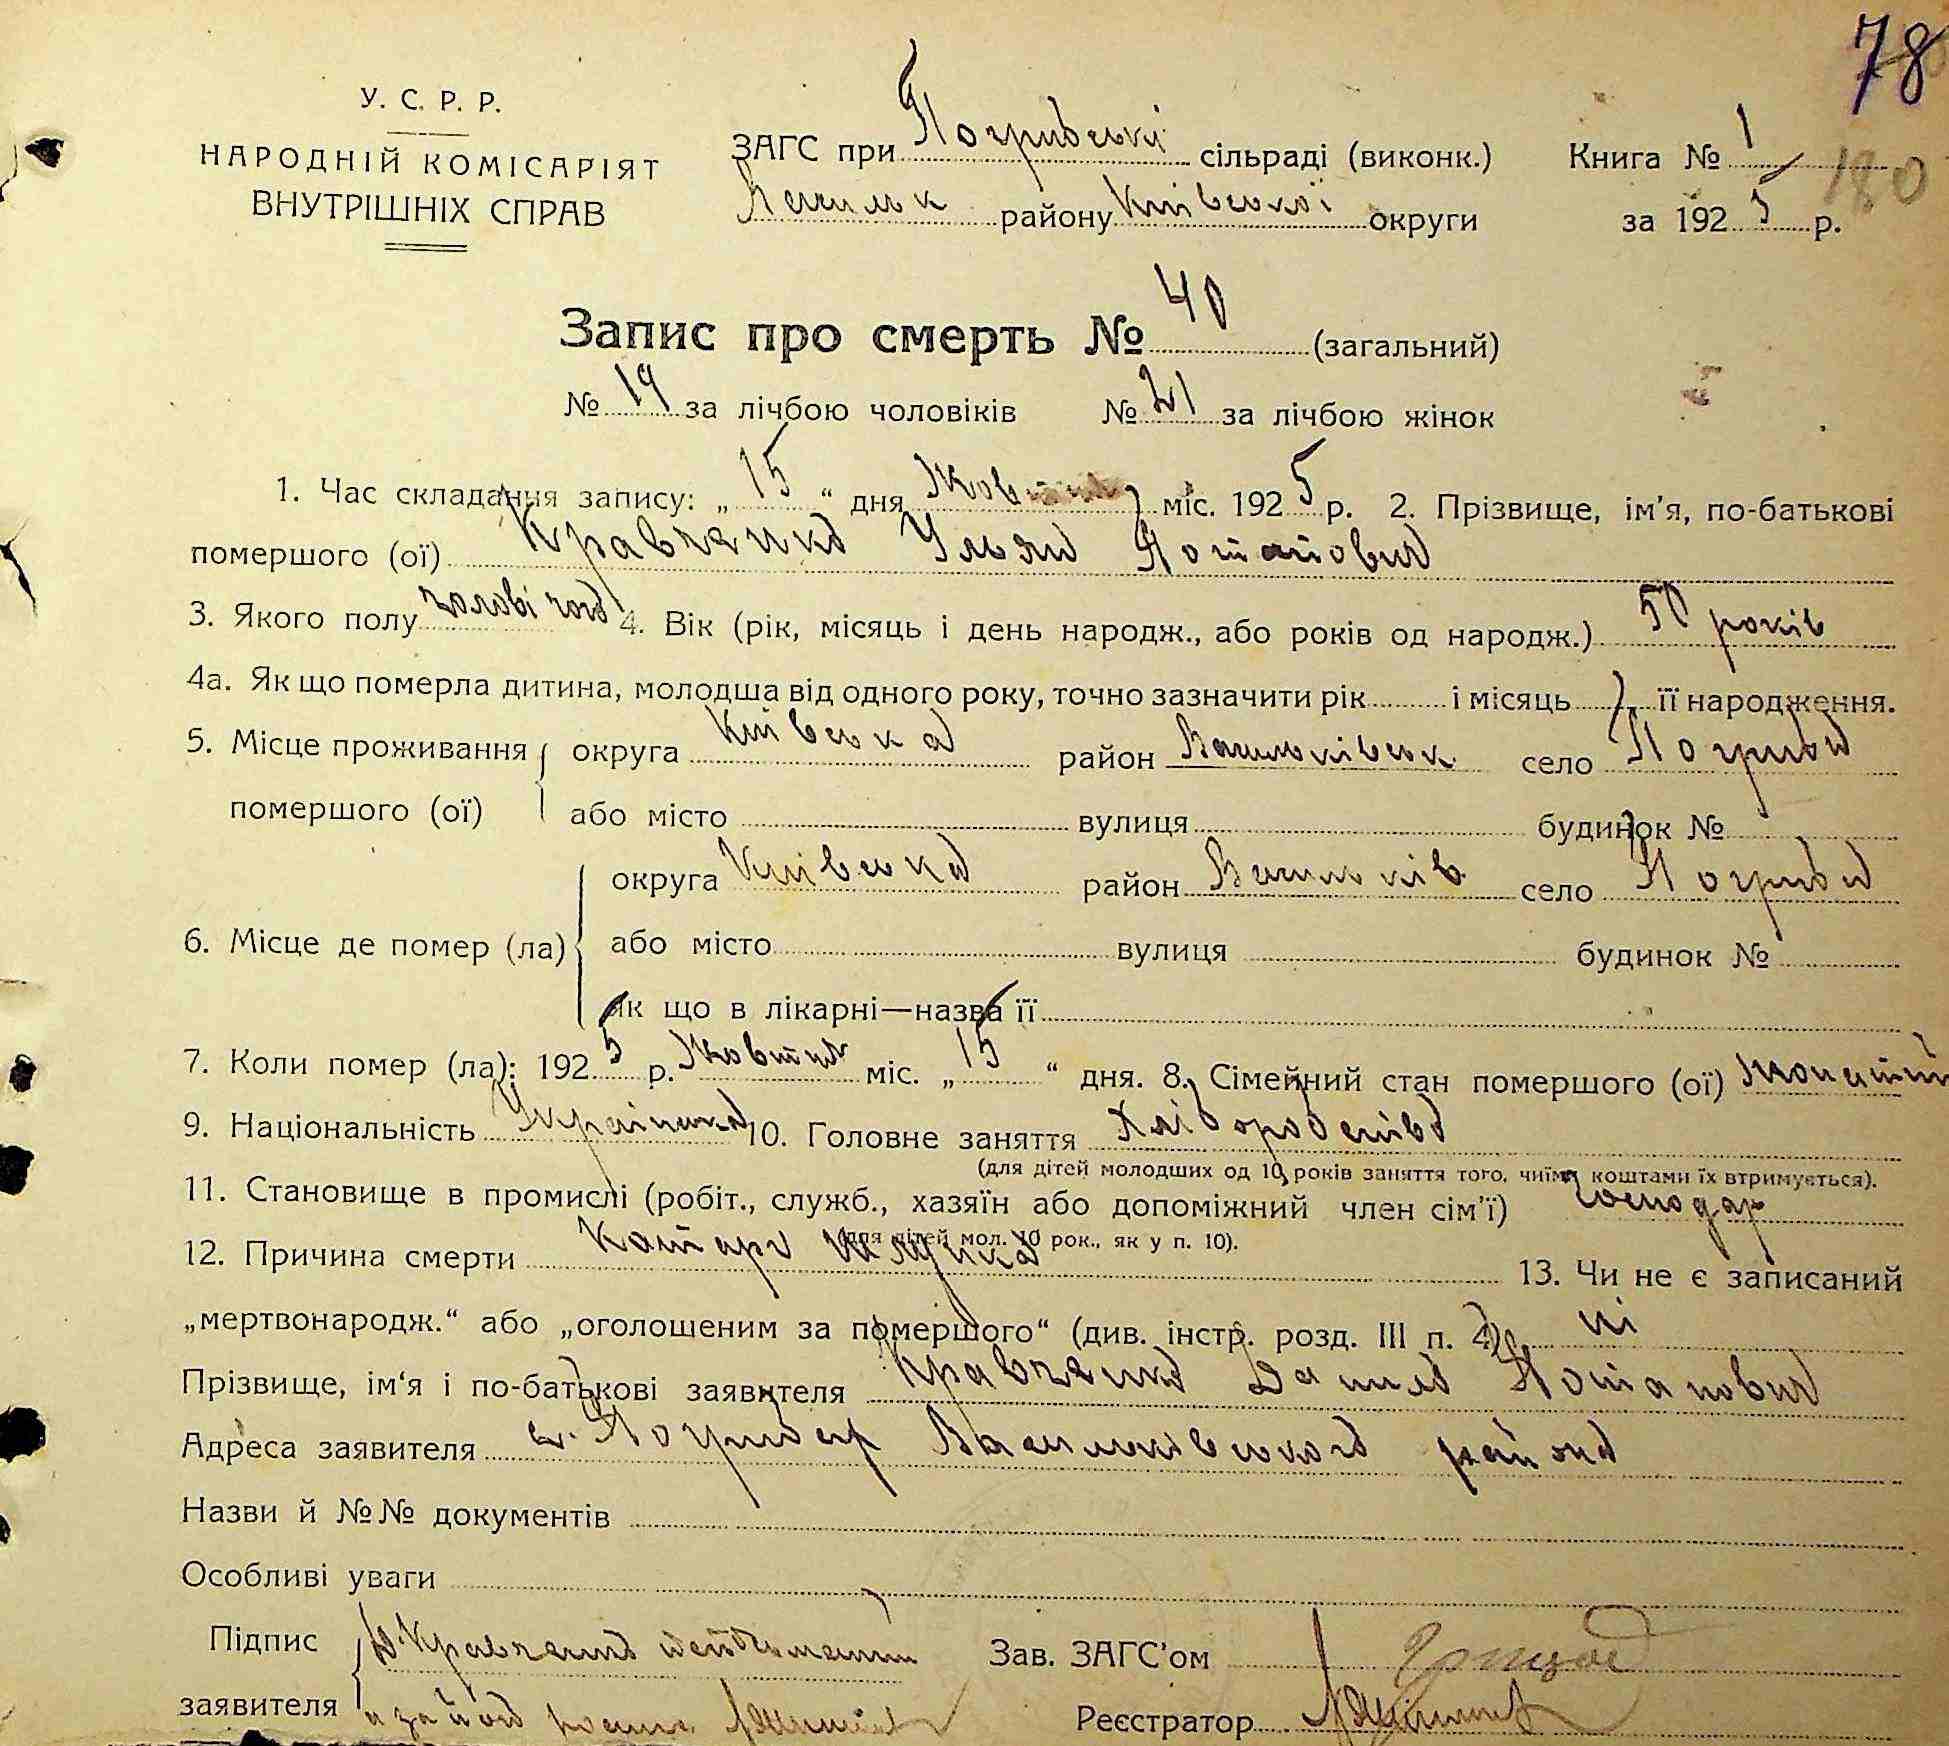 78
У. С. Р. Р.
НАРОДНІЙ КОМІСАРІЯТ
ВНУТРІШНІХ СПРАВ
ЗАГС при Погребській сільраді (виконк.) Книга № 1
180
Васильк району Київської округи за 1925 р.
Запис про смерть № 40 (загальний)
№ 19 за лічбою чоловіків № 21 за лічбою жінок
1. Час складання запису: „15“ дня Жовтня міс. 1925 р. 2. Прізвище, ім'я, по-батькові
помершого (ої) Кравченко Ульян Потапович
3. Якого полу чоловічого 4. Вік (рік, місяць і день народж., або років од народж.) 50 років
4а. Як що померла дитина, молодша від одного року, точно зазначити рік і місяць її народження.
5. Місце проживання округа Київська район Васильківськ село Погреби
помершого (ої) або місто вулиця будинок №
округа Київська район Васильків село Погреби
6. Місце де помер (ла) або місто вулиця будинок №
як що в лікарні—назва її
7. Коли помер (ла): 1925 р. Жовтня міс. „15“ дня. 8. Сімейний стан помершого (ої) жонатий
9. Національність 10. Головне заняття Хліборобство
(для дітей молодших од 10 років заняття того, чиїми коштами їх втримується).
11. Становище в промислі (робіт., служб., хазяїн або допоміжний член сім'ї) господар
(для дітей мол. 10 рок., як у п. 10).
12. Причина смерти Катар шлунка 13. Чи не є записаний
„мертвонародж.“ або „оголошеним за помершого“ (див. інстр. розд. III п. 4) ні
Прізвище, ім'я і по-батькові заявителя Кравченко Данило Потапович
Адреса заявителя с. Погреби Васильківського району
Назви й №№ документів
Особливі уваги
Підпис Д. Кравченко Зав. ЗАГС'ом
заявителя Реєстратор